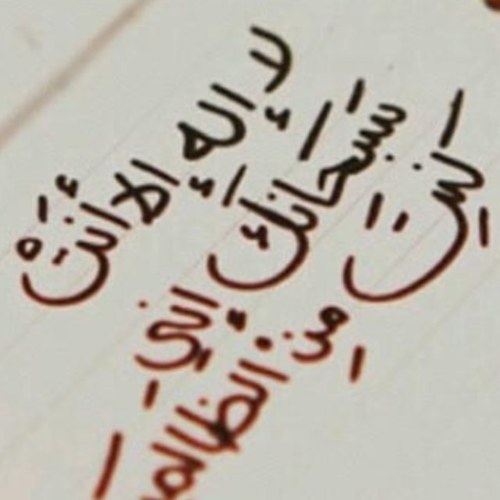 لا إله إلا أنت
سبحانك إني
كنت من الظالم